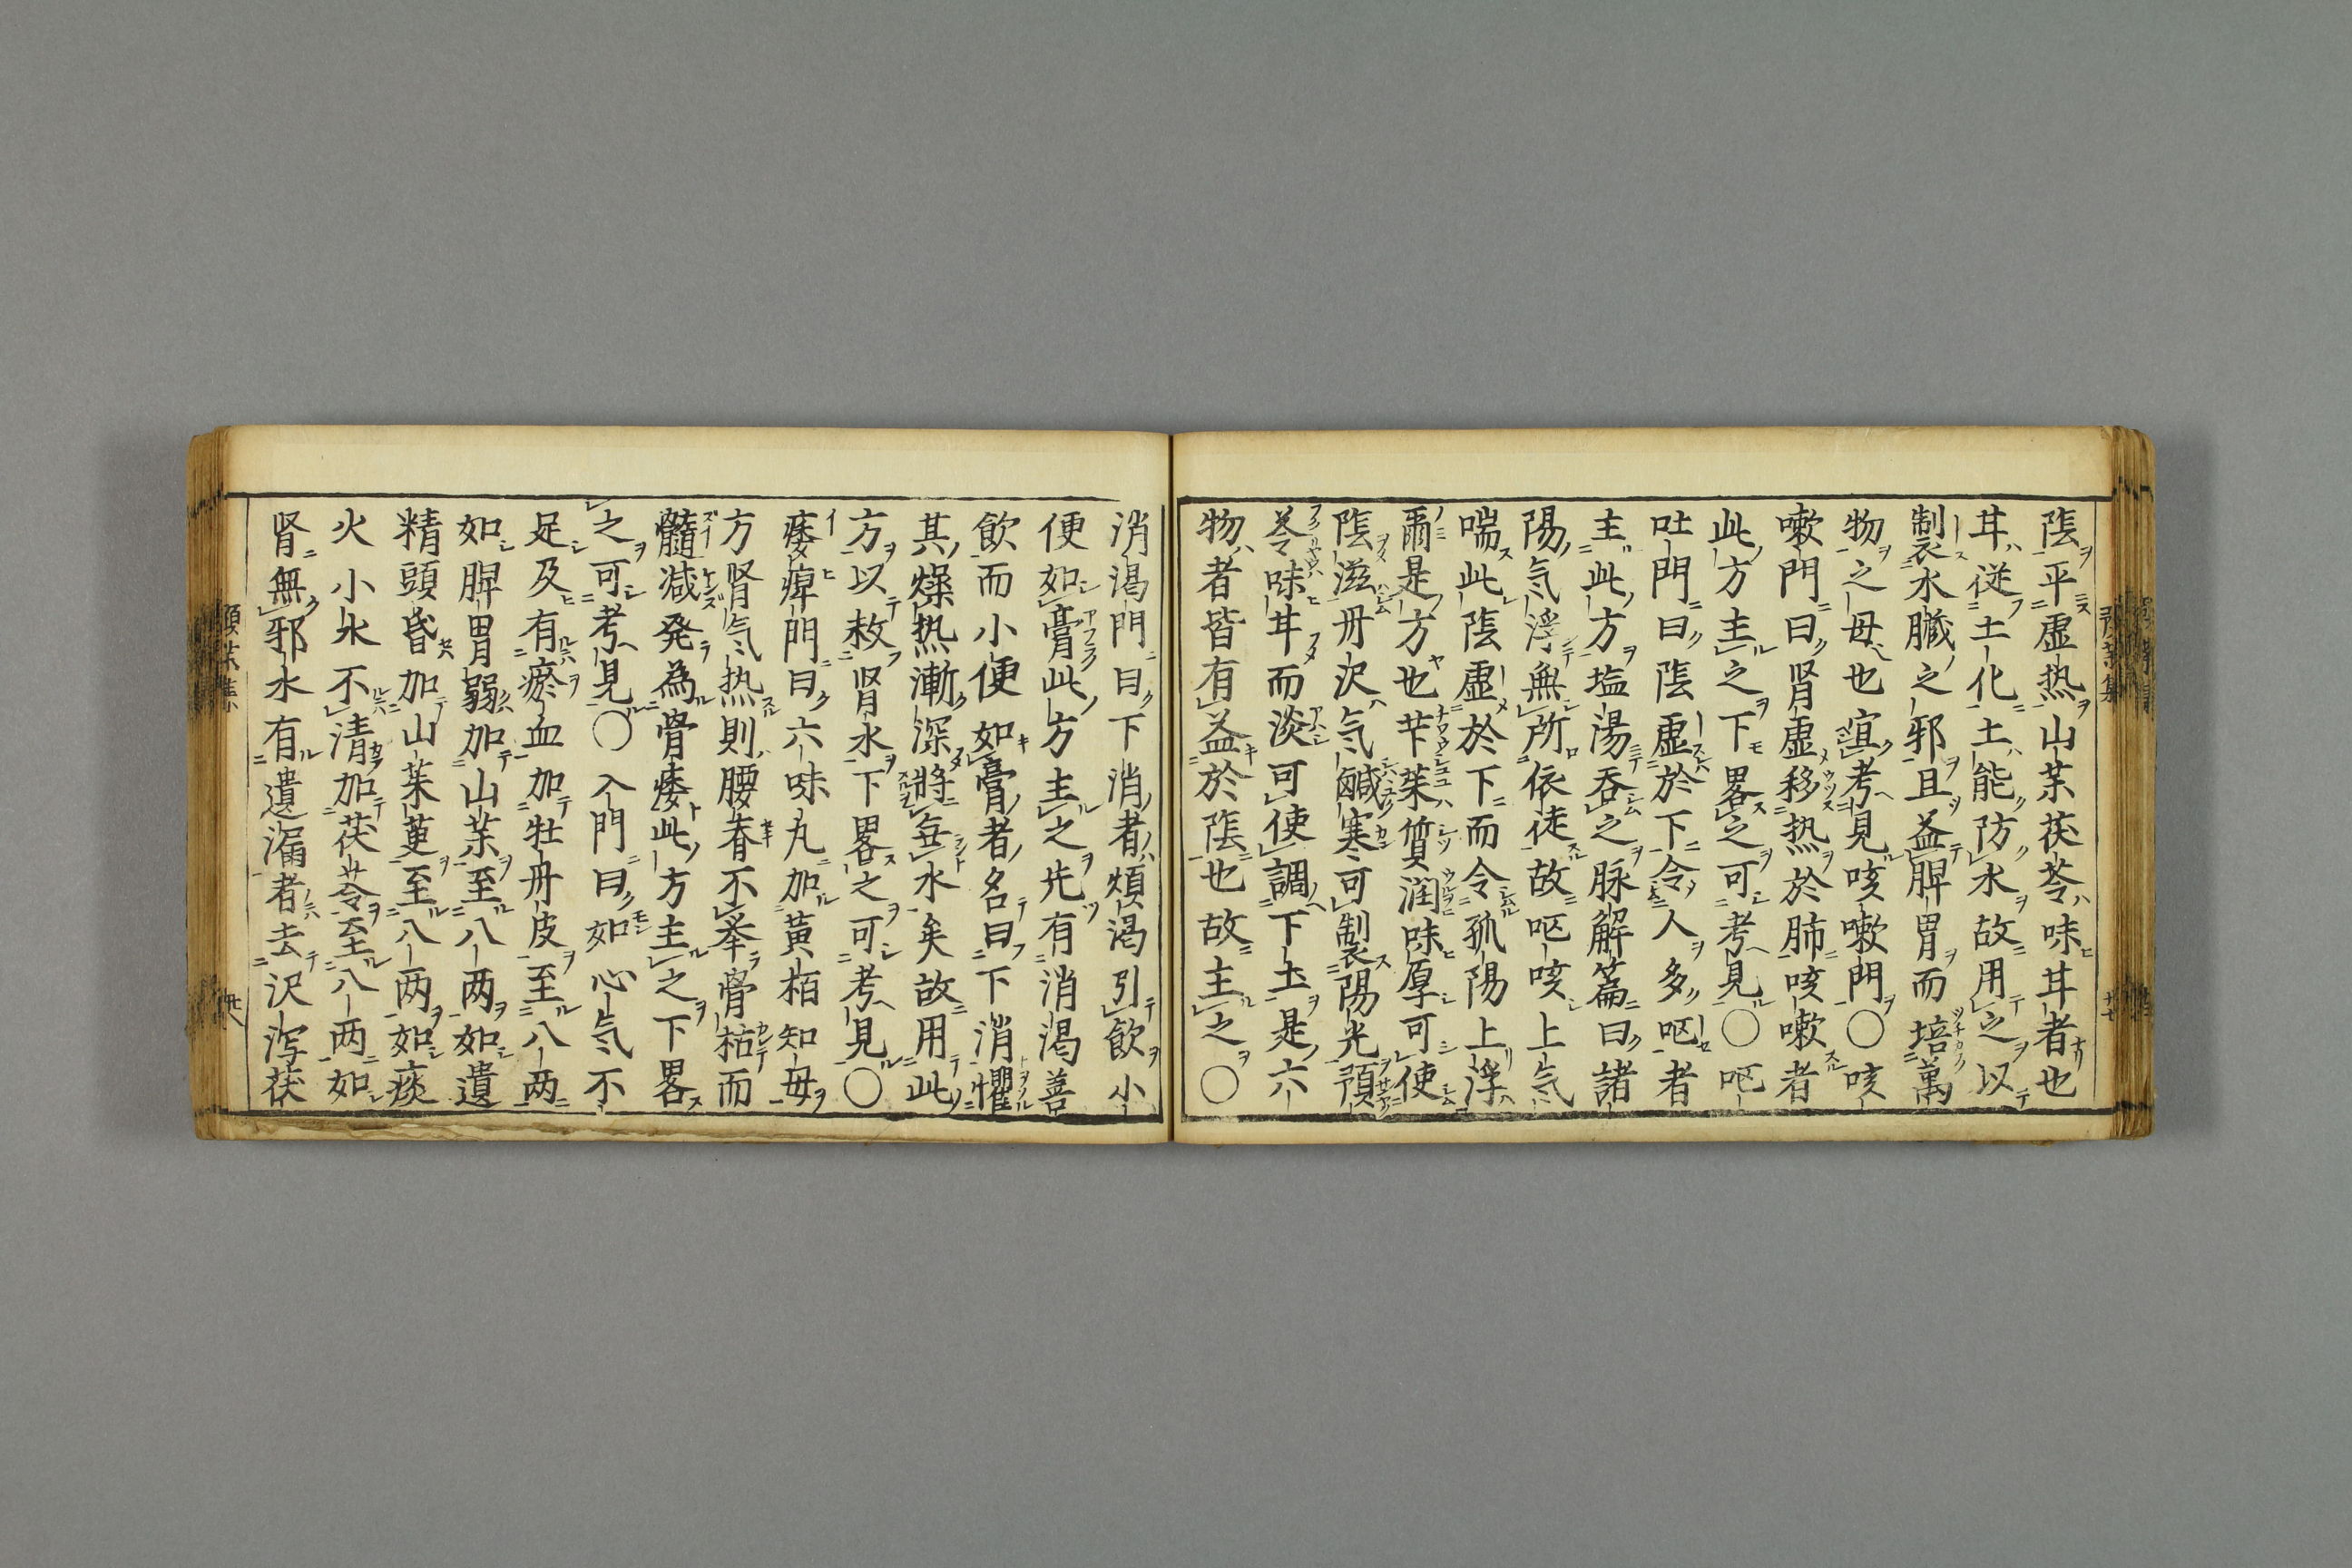 陰平虚热山茱茯苓味耳者也
耳従土化土能防水故用之以
制水臓之邪且益脾胃而培萬
物之母也宜考見咳嗽門〇咳
嗽門曰肾虚移热於肺咳嗽者
此方主之下畧之可考見〇呕
吐門曰陰虚於下令人多呕者
主此方塩湯呑之脉解篇曰諸
陽気浮無所依徒故呕咳上気
喘此陰虚於下而令孤陽上浮
爾是方也芐茱質润味厚可使
陰滋丹沢気鹹寒可制陽光預
苓味甘而淡可使調下土是六
物者皆有益於陰也故主之〇
消渇門曰下消者煩渇引飲小
便如膏此方主之先有消渇善
飲而小便如膏者名曰下消懼
其燥热漸深將無水矣故用此
方以救肾水下畧之可考見〇
痿痺門曰六味丸加黄栢知母
方肾気热則腰脊不挙骨枯而
髓减発為骨痿此方主之下畧
之可考見〇入門曰如心気不
足及有瘀血加牡丹皮至八两
如脾胃弱加山茱至八两如遺
精頭昏加山茱萸至八两如痰
火小水不清加茯苓至八两如
肾無邪水有遺漏者去沢泻茯